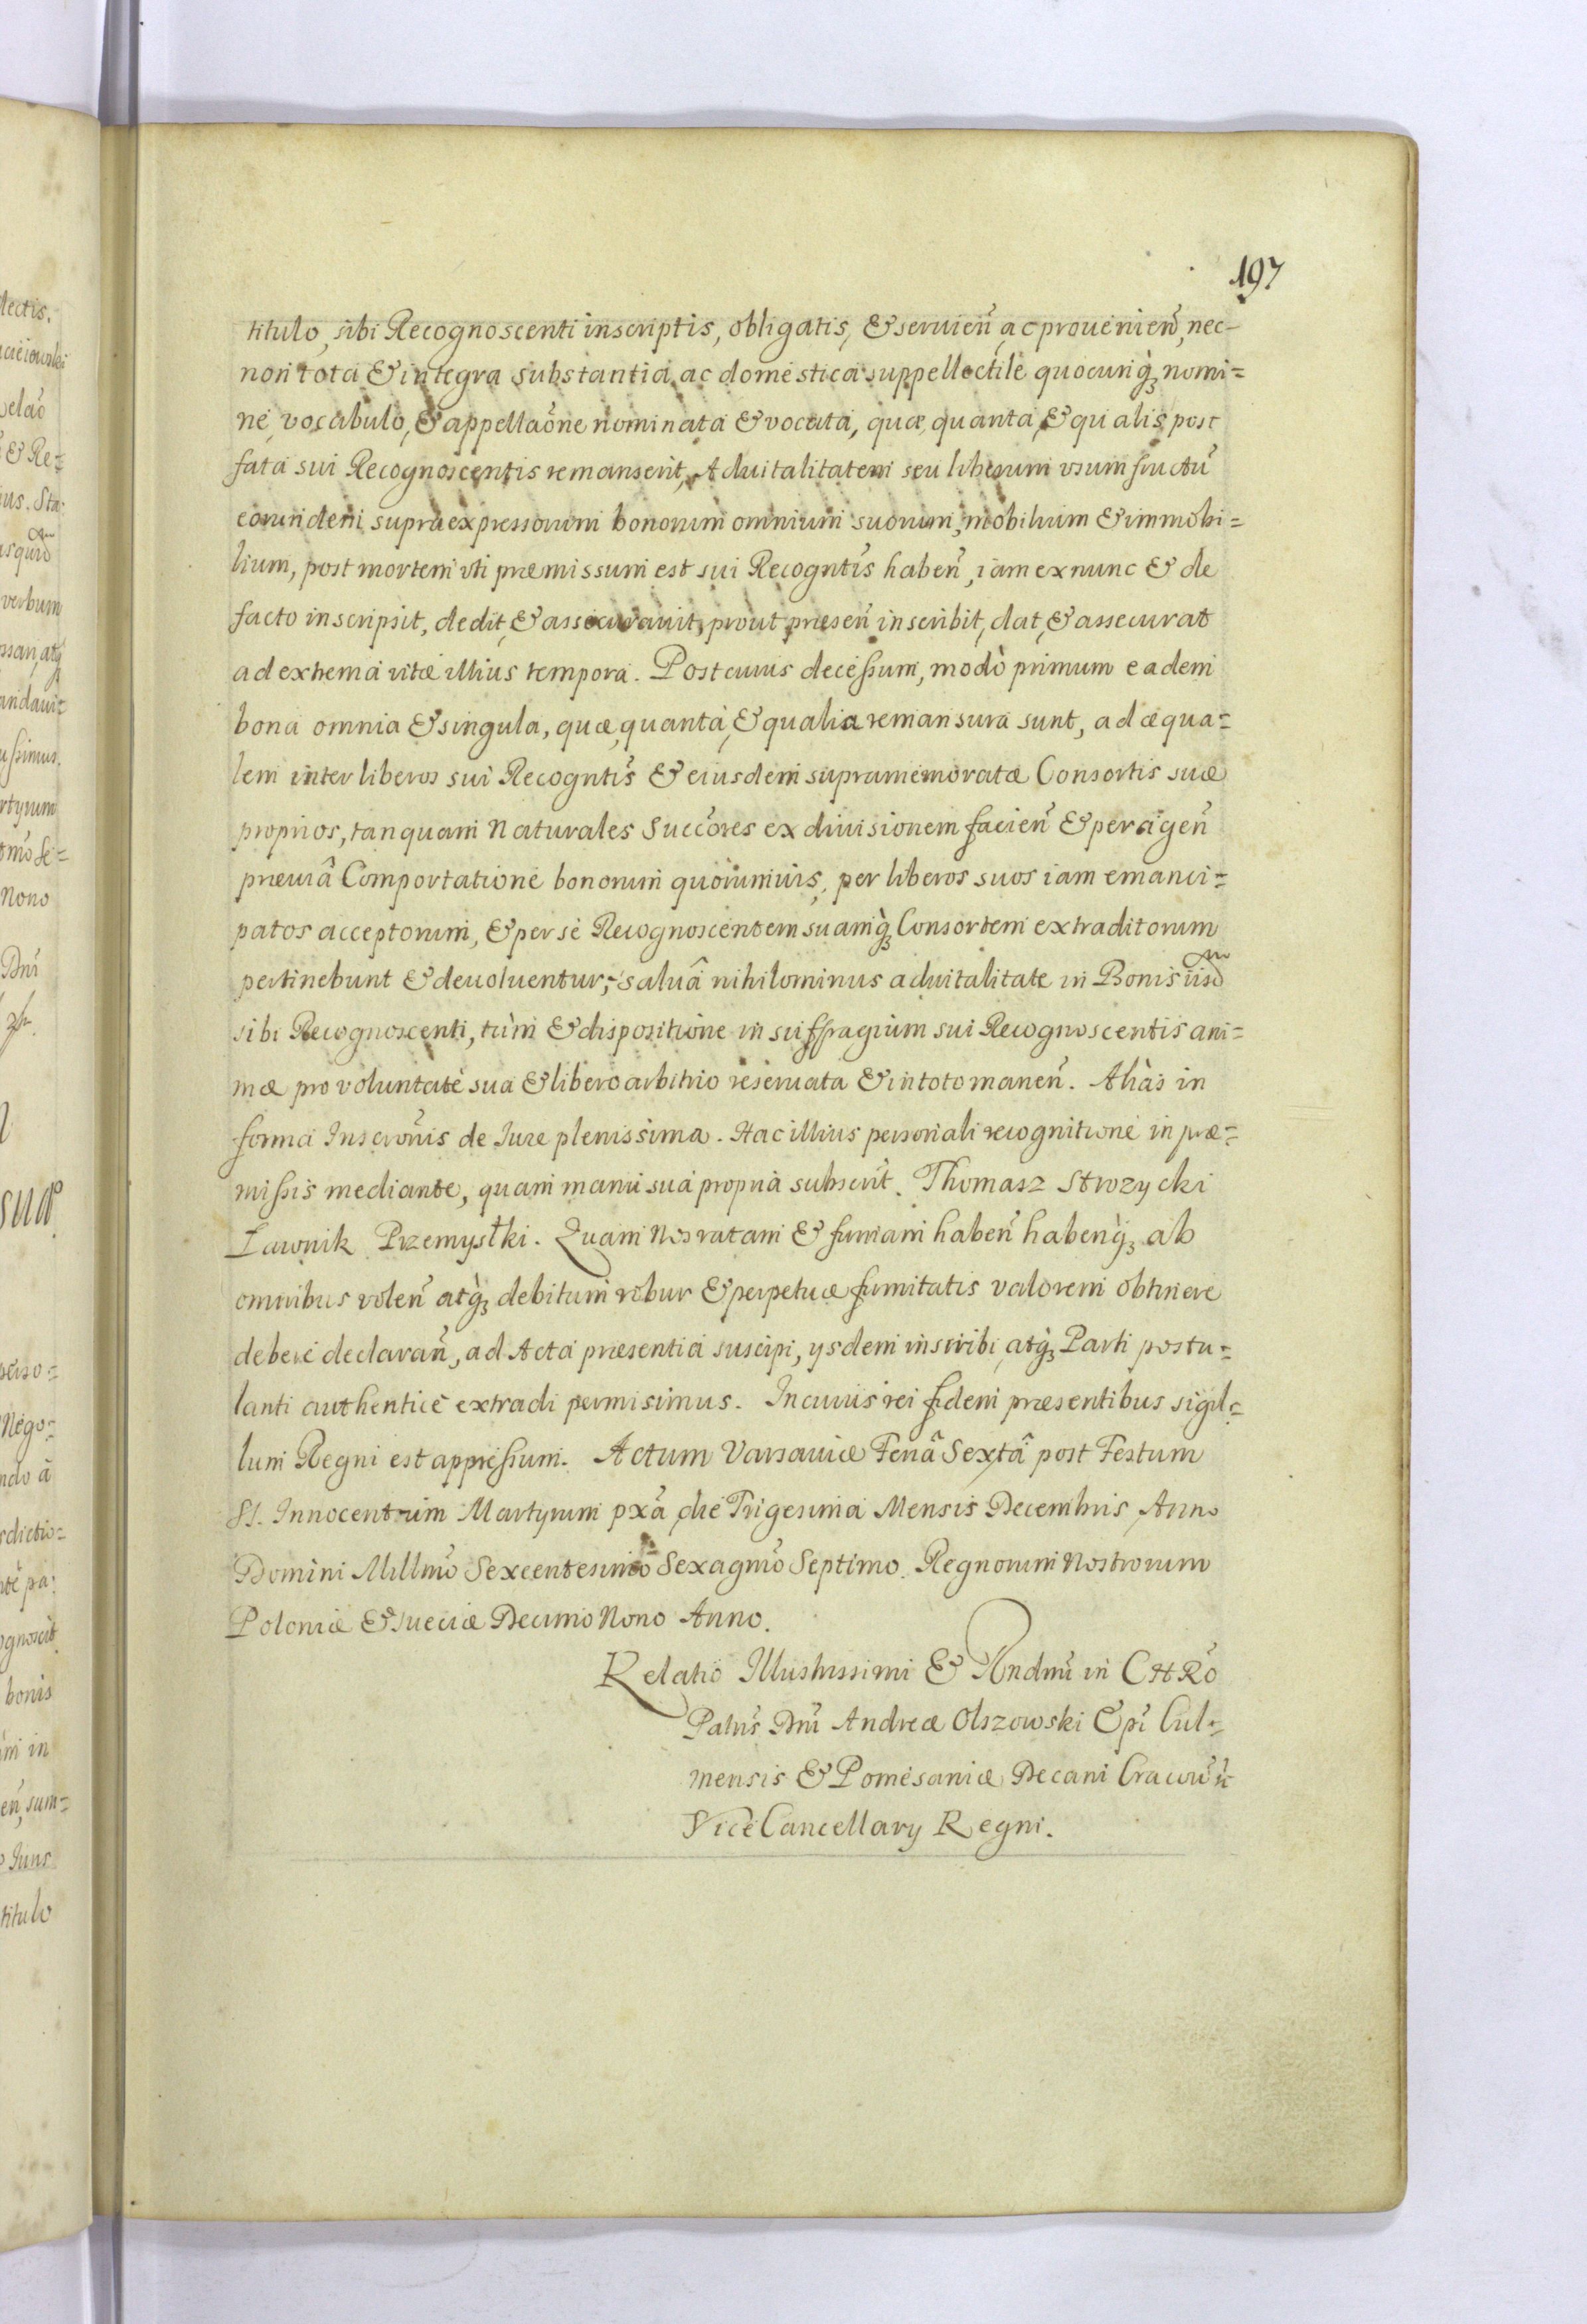 197
titulo, sibi Recognoscenti inscriptis, obligatis, & seruień, ac prouenień, nec-
non tota & integra substantia, ac domestica suppellectile quocunq́ȝ nomi=
ne, vocabulo, & appellaõne nominata & vocata, quæ, quanta, & qualis post
fata sui Recognoscentis remanserit, Aduitalitatem seu liberum vsumfructũ
eorundem supra expressorum bonorum omnium suorum, mobilium & immobi=
lium, post mortem vti præmissum est sui Recogntĩs habeń, iam ex nunc & de
facto inscripsit, dedit, & assecurauit, prout præseń inscribit, dat, & assecurat
ad extrema vitæ illius tempora. Post cuius decessum, modò primum eadem
bona omnia & singula, quæ, quanta, & qualia remansura sunt, ad æqua=
lem inter liberos sui Recogntĩs & eiusdem supramemoratæ Consortis suæ
proprios, tanquam Naturales Succ̃ores exdiuisionem facień & perageń
præuiâ Comportatione bonorum quorumuis, per liberos suos iam emanci=
patos acceptorum, & per se Recognoscentem suamq́ȝ Consortem extraditorum
pertinebunt & deuoluentur, saluâ nihilominus aduitalitate in Bonis iisd̃
sibi Recognoscenti, tùm & dispositione in suffragium sui Recognoscentis ani=
mæ pro voluntate sua & libero arbitrio reseruata & in toto maneń. Aliàs in
forma Inscrõnis de Iure plenissima. Hac illius personali recognitione in præ=
missis mediante, quam manu sua propria subscrit̃. Thomasz Strozycki
Ławnik Przemysłki. Quam Nos ratam & firmam habeń habenq́ȝ ab
omnibus voleń atq́ȝ debitum robur & perpetuæ firmitatis valorem obtinere
debere declarań, ad Acta præsentia suscipi, ysdem inscribi, atq́ȝ Parti postu=
lanti authenticè extradi permisimus. In cuius rei fidem præsentibus sigil=
lum Regni est appressum. Actum Varsauiæ Feriâ Sextâ post Festum
SS. Innocentium Martyrum px̃a, die Trigesima Mensis Decembris, Anno
Domini Millmõ Sexcentesimo Sexagmõ Septimo. Regnorum Nostrorum
Poloniæ & Sueciæ Decimo Nono Anno.
Relatio Illustrissimi & Rndmĩ in CHRõ
Patrĩs Dnĩ Andreæ Olszowski Epĩ Cul=
mensis & Pomesaniæ Decani Cracouiẽń
ViceCancellary Regni.